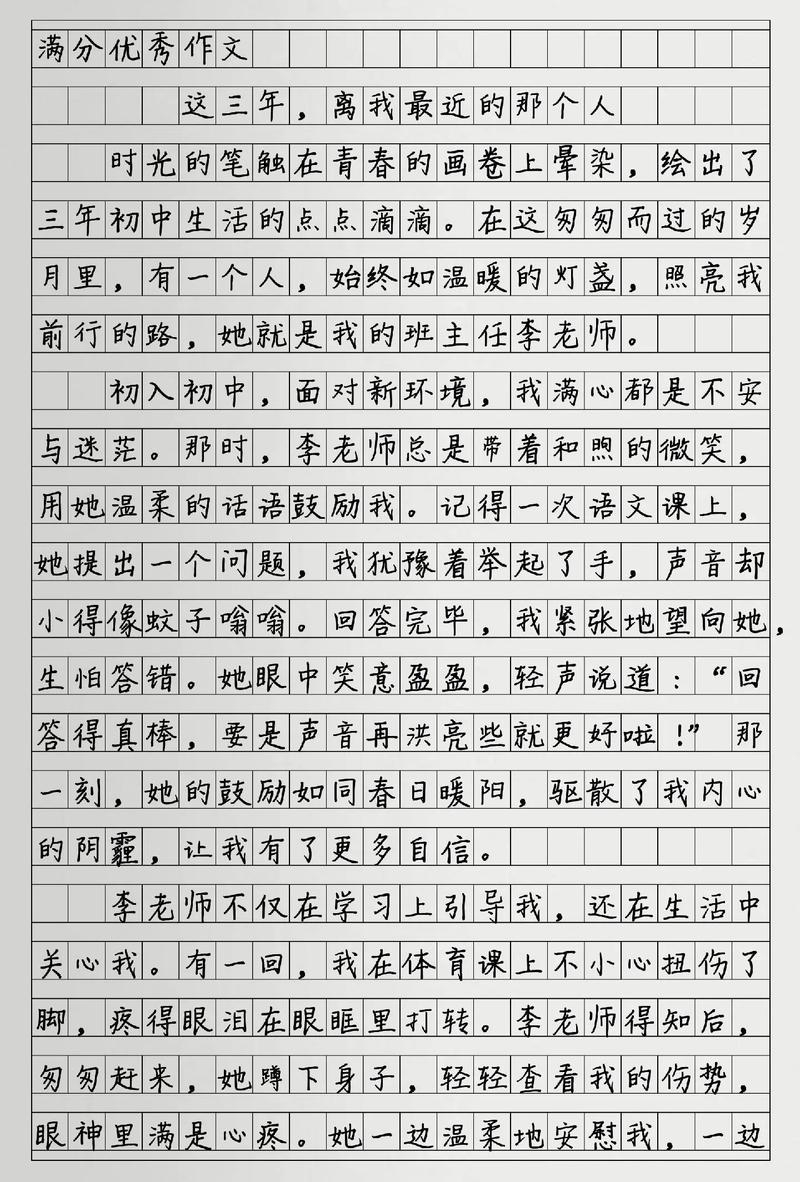 满分优秀作文
这三年，离我最近的那个人
时光的笔触在青春的画卷上晕染，绘出了
三年初中生活的点点滴滴。在这匆匆而过的岁
月里，有一个人，始终如温暖的灯盏，照亮我
前行的路，她就是我的班主任李老师。
初入初中，面对新环境，我满心都是不安
与迷茫。那时，李老师总是带着和煦的微笑，
用她温柔的话语鼓励我。记得一次语文课上，
她提出一个问题，我犹豫着举起了手，声音却
小得像蚊子嗡嗡。回答完毕，我紧张地望向她，
生怕答错。她眼中笑意盈盈，轻声说道：“回
答得真棒，要是声音再洪亮些就更好啦！”那
一刻，她的鼓励如同春日暖阳，驱散了我内心
的阴霾，让我有了更多自信。
李老师不仅在学习上引导我，还在生活中
关心我。有一回，我在体育课上不小心扭伤了
脚，疼得眼泪在眼眶里打转。李老师得知后，
匆匆赶来，她蹲下身子，轻轻查看我的伤势，
眼神里满是心疼。她一边温柔地安慰我，一边